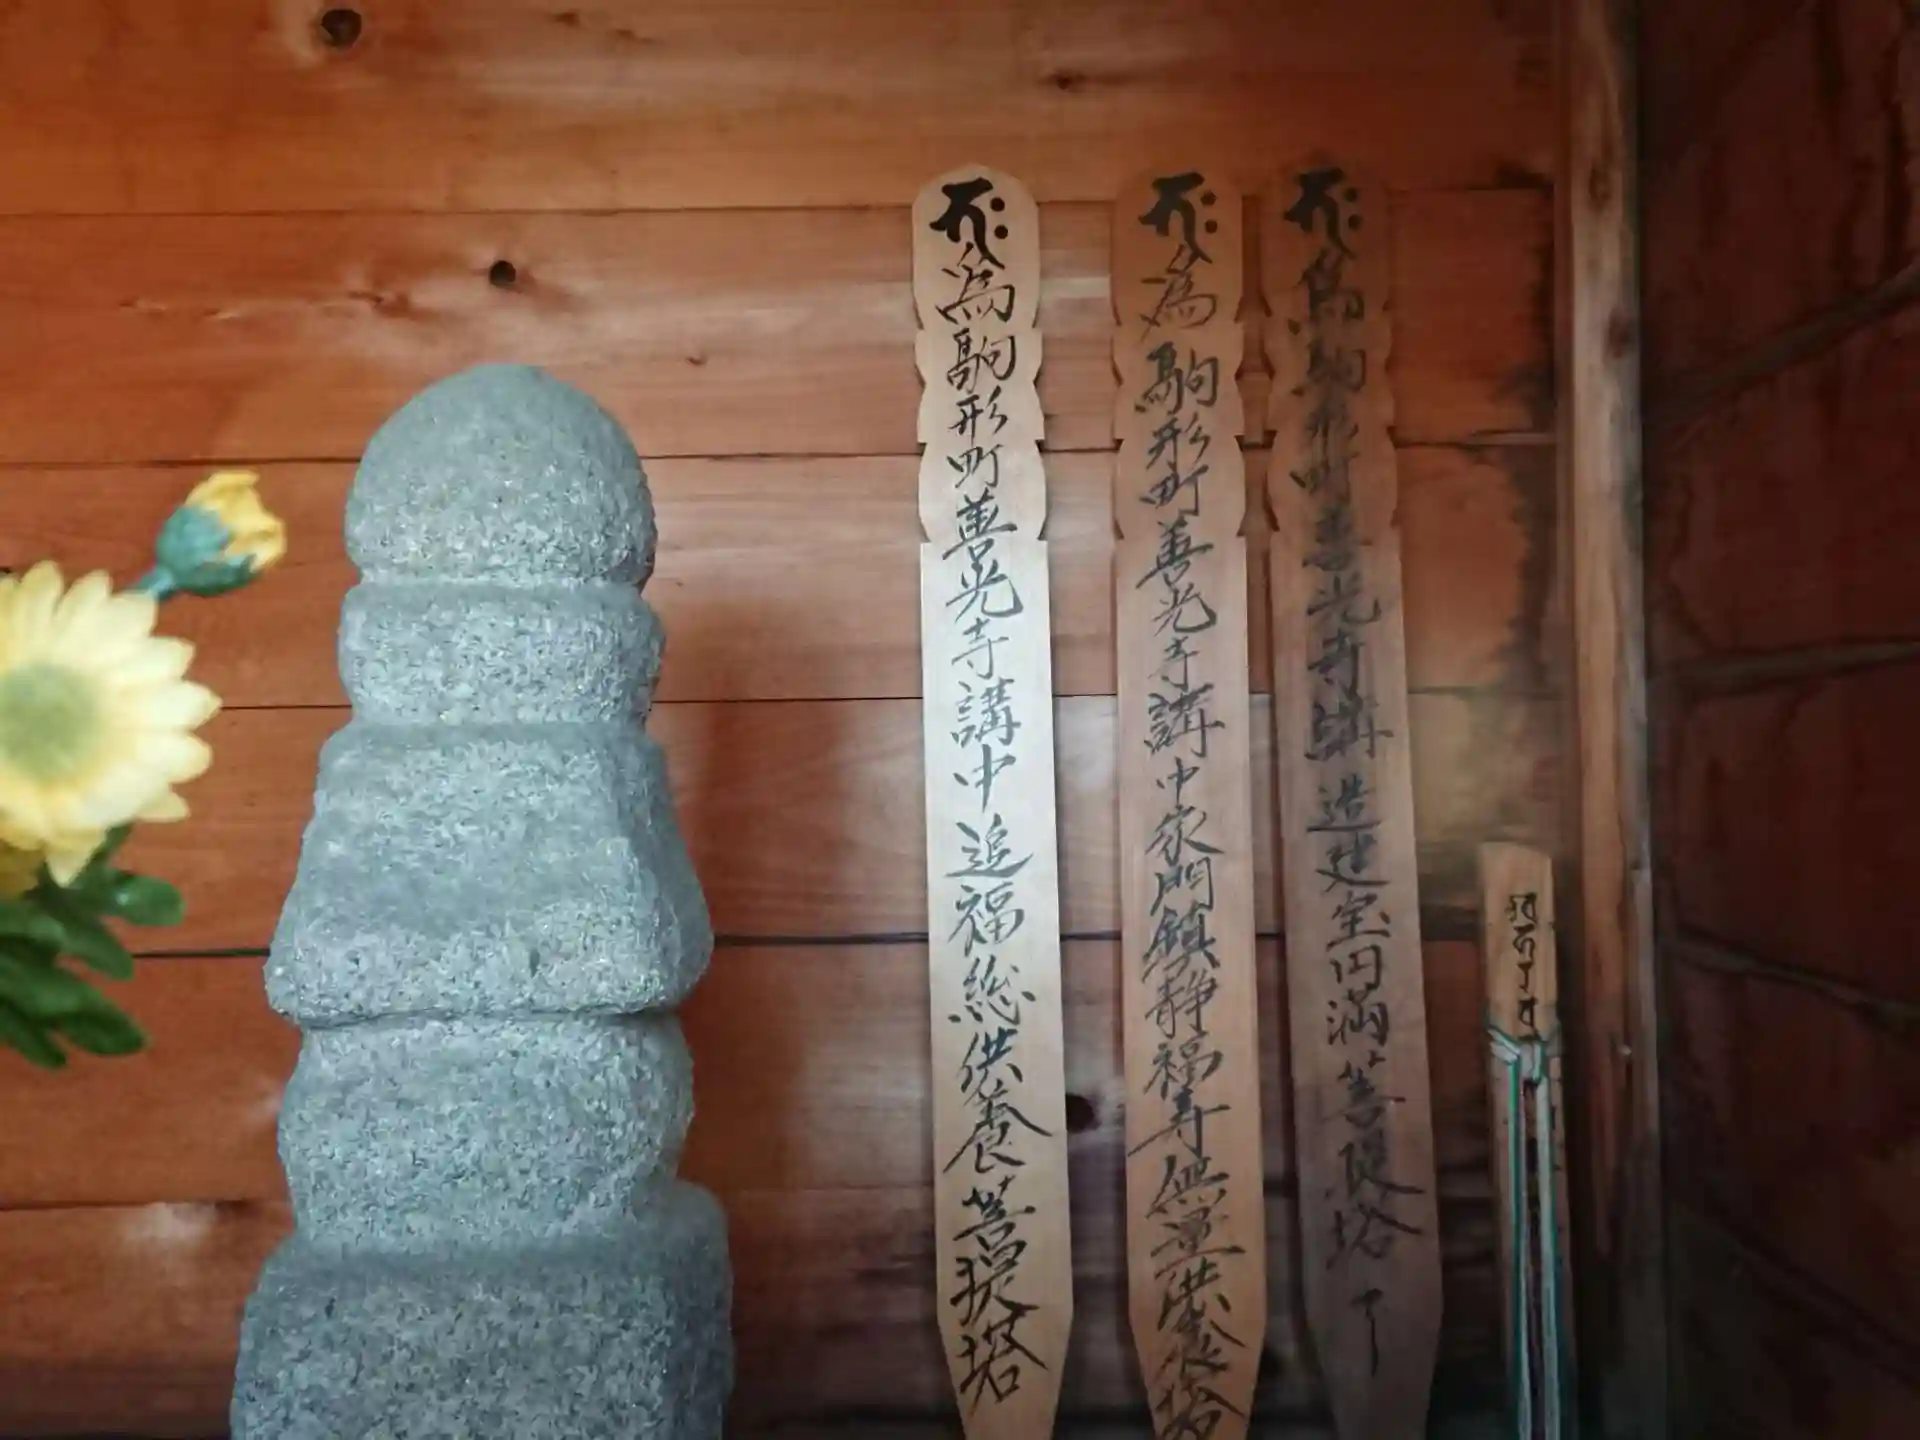 為駒形町善光寺講中追福総供養菩提塔
為駒形町善光寺講中家門鎮静福寿無量供養塔
為駒形町善光寺講造建宝円満菩提塔